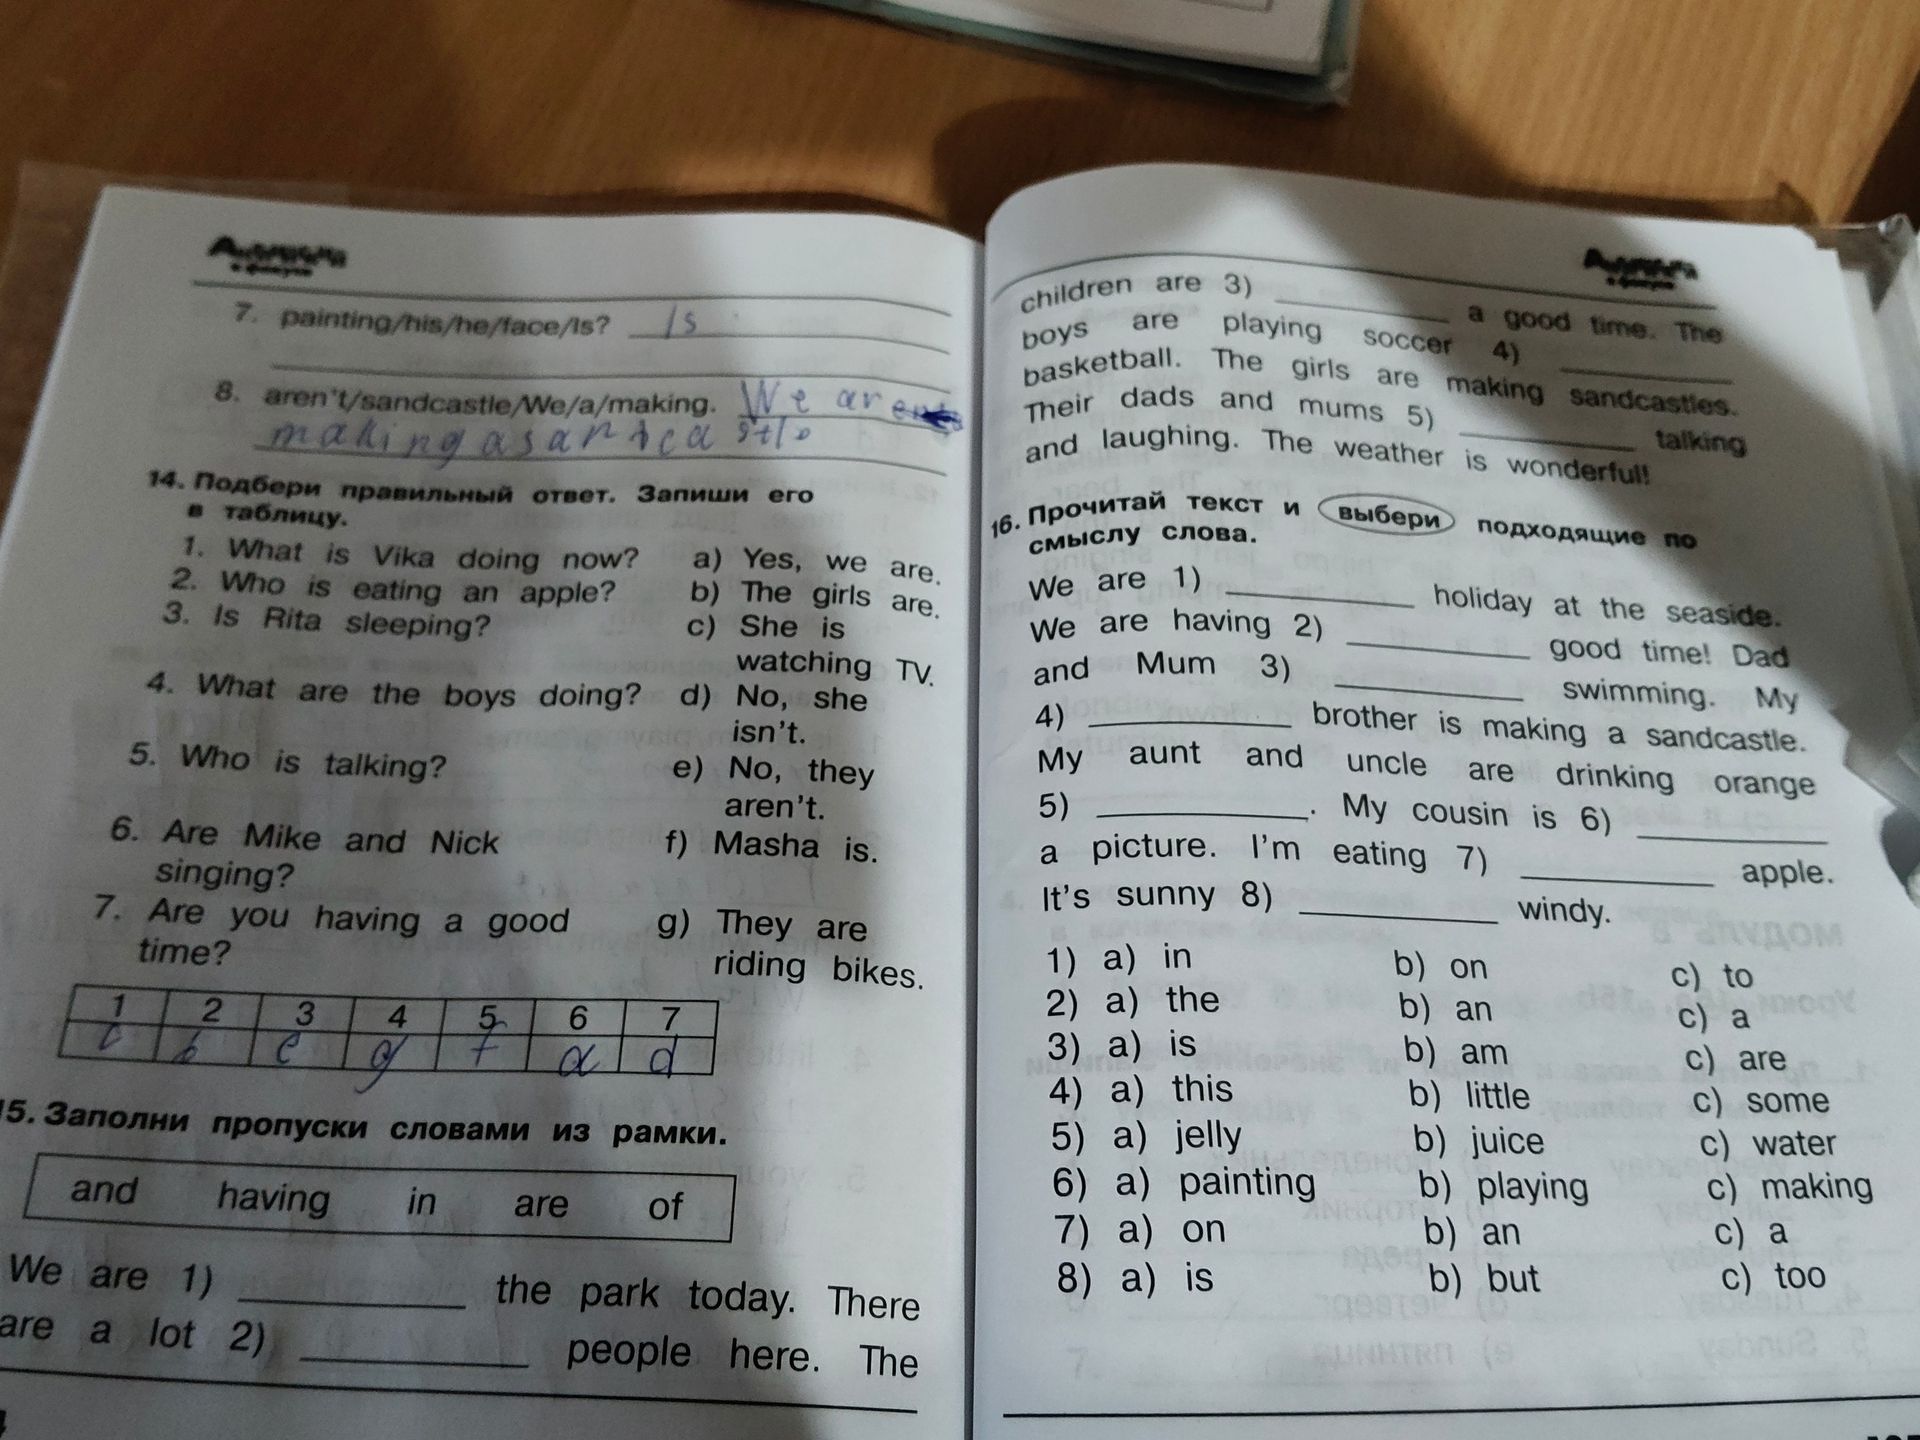 7. painting/his/he/face/Is? Is
8. aren't/sandcastle/We/a/making. We
making a
14. Подбери правильный ответ. Запиши его
в таблицу.
1. What is Vika doing now? a) Yes, we are.
2. Who is eating an apple? b) The girls are.
3. Is Rita sleeping? c) She is
watching TV.
4. What are the boys doing? d) No, she
isn't.
5. Who is talking? e) No, they
aren't.
6. Are Mike and Nick f) Masha is.
singing?
7. Are you having a good g) They are
time? riding bikes.
1 2 3 4 5 6 7
c b e g f a d
15. Заполни пропуски словами из рамки.
and having in are of
We are 1) ____ the park today. There
are a lot 2) ____ people here. The
children are 3) ____ a good time. The
boys are playing soccer 4) ____
basketball. The girls are making sandcastles.
Their dads and mums 5) ____ talking
and laughing. The weather is wonderful!
16. Прочитай текст и выбери подходящие по
смыслу слова.
We are 1) ____ holiday at the seaside.
We are having 2) ____ good time! Dad
and Mum 3) ____ swimming. My
4) ____ brother is making a sandcastle.
My aunt and uncle are drinking orange
5) ____. My cousin is 6) ____
a picture. I'm eating 7) ____ apple.
It's sunny 8) ____ windy.
1) a) in b) on c) to
2) a) the b) an c) a
3) a) is b) am c) are
4) a) this b) little c) some
5) a) jelly b) juice c) water
6) a) painting b) playing c) making
7) a) on b) an c) a
8) a) is b) but c) too